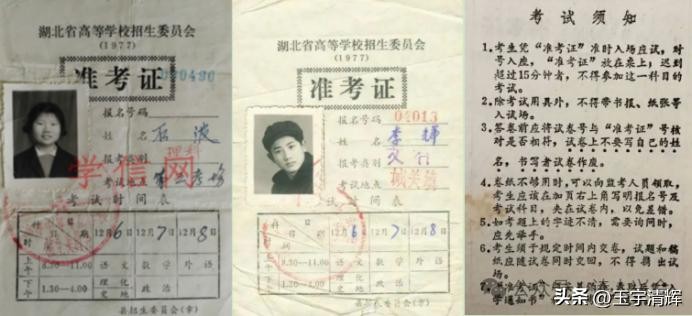 湖北省高等学校招生委员会
(1977)
准考证
报名号码
姓名
报考类别 理科
考试地点
学信网
考试时间表
日期
12月6日 12月7日 12月8日
上午 8.30—11.00 语文 数学 外语
下午 理化 史地 政治
县招生委员会(章)
湖北省高等学校招生委员会
(1977)
准考证
报名号码 04013
姓名 李辉
报考类别 文科
考试地点
考试时间表
日期
12月6日 12月7日 12月8日
上午 8.30—11.00 语文 数学 外语
下午 1.30—4.00 理化 史地 政治
县招生委员会(章)
考试须知
1.考生凭“准考证”准时入场应试,对
号入座,“准考证”放在桌上,迟到
超过15分钟者,不得参加这一科目的
考试。
2.除考试用具外,不得带书报、纸张等
入试场。
3.答卷前应将试卷号与“准考证”号核
对是否相符,试卷上不要写自己的姓
名,书写者试卷作废。
4.卷纸不够用时,可以向监考人员领取,
考生应该在加页右上角写明报名号及
考试科目,夹在试卷内,以免差错。
5.如考题上的字迹不清,需要询问时,
应先举手。
6.考生须于规定时间内交卷,试题和稿
纸应随试卷同时交回,不得携出试
场。
学通知书”
头条@玉宇清辉